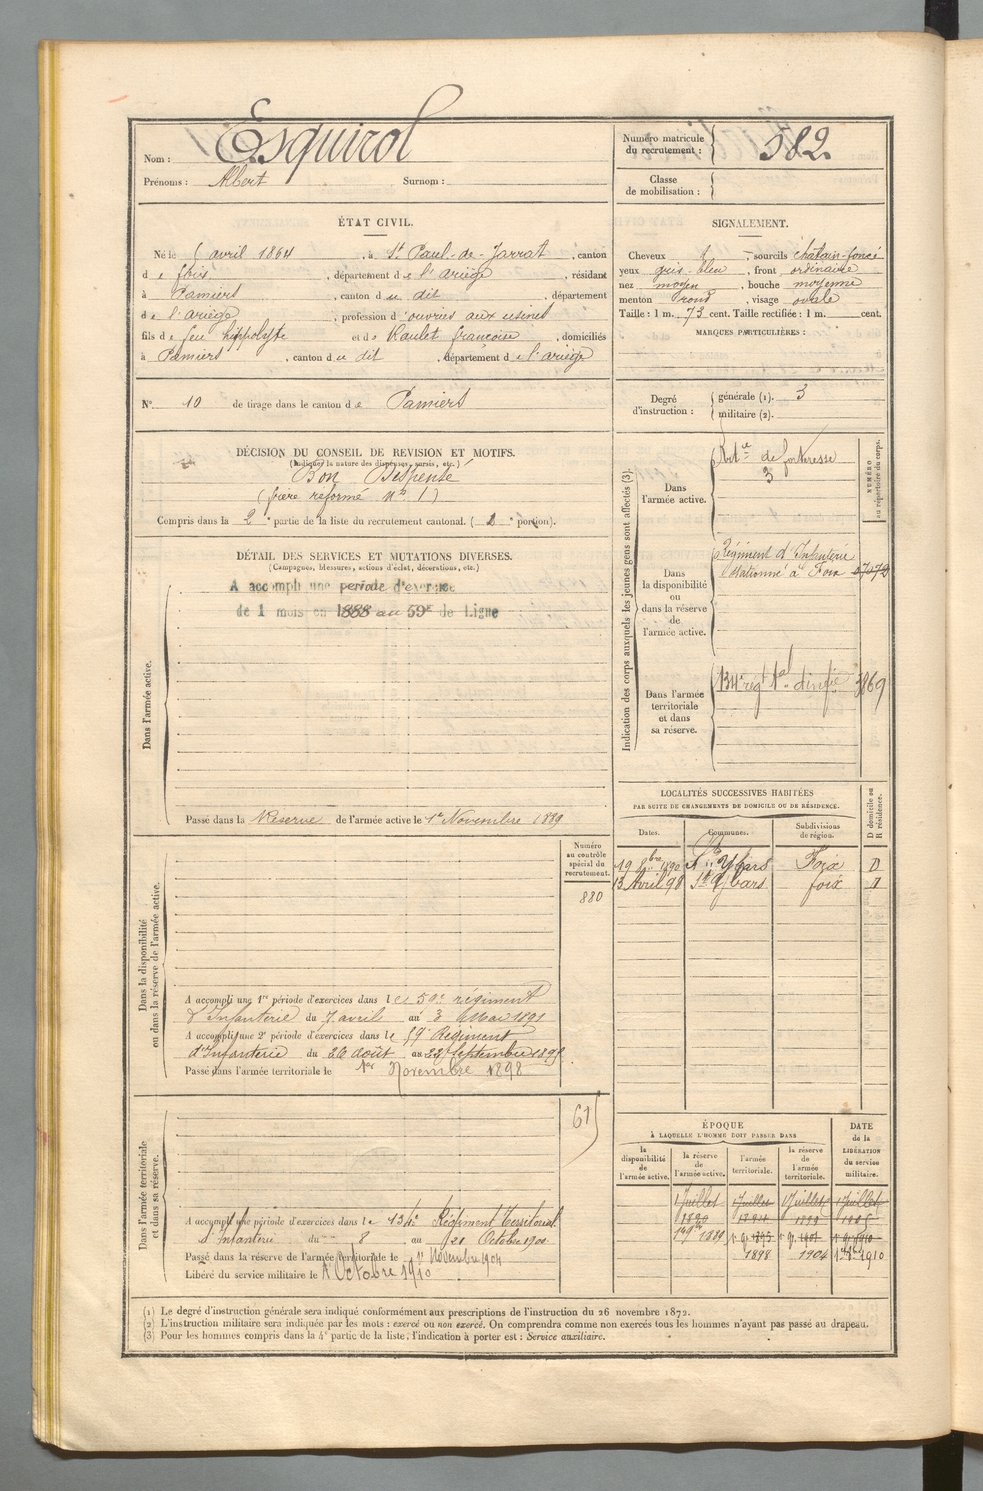 Nom : Esquirol
Prénoms : Albert Surnom :
Numéro matricule du recrutement : 582.
Classe de mobilisation :
ÉTAT CIVIL.
Né le avril 1864, à St Paul-de-Jarrat, canton
de foix, département de l'ariège, résidant
à Pamiers, canton du dit, département
de l'ariège, profession d'ouvrier aux usines
fils de feu hippolyte et de Raulet françoise, domiciliés
à Pamiers, canton du dit, département de l'ariège
SIGNALEMENT.
Cheveux, sourcils chatain-foncé
yeux gris-bleu, front ordinaire
nez moyen, bouche moyenne
menton rond, visage ovale
Taille : 1 m. 73 cent. Taille rectifiée : 1 m. cent.
MARQUES PARTICULIÈRES :
N° 10 de tirage dans le canton de Pamiers
Degré d'instruction : générale (1). 3
militaire (2).
DÉCISION DU CONSEIL DE REVISION ET MOTIFS.
(Indiquer la nature des dispenses, sursis, etc.)
Bon Dispensé
(frère réformé n° 1)
Compris dans la 2e partie de la liste du recrutement cantonal. (2e portion).
DÉTAIL DES SERVICES ET MUTATIONS DIVERSES.
(Campagnes, blessures, actions d'éclat, décorations, etc.)
Dans l'armée active.
A accompli une période d'exercice
de 1 mois en 1888 au 59e de Ligne
Passé dans la Réserve de l'armée active le 1er Novembre 1889
Indication des corps auxquels les jeunes gens sont affectés (3).
NUMÉRO au répertoire du corps.
Dans l'armée active.
Artie de forteresse
3
Dans la disponibilité ou dans la réserve de l'armée active.
Régiment d'Infanterie
stationné à Foix
Dans l'armée territoriale et dans sa réserve.
134e regt tal d'infie 3869
LOCALITÉS SUCCESSIVES HABITÉES
PAR SUITE DE CHANGEMENTS DE DOMICILE OU DE RÉSIDENCE.
D domicile ou R résidence.
Dates. Communes. Subdivisions de région.
19 8bre 1890 Ste Ybars Foix D
13 Avril 98 St Ybars foix D
Numéro au contrôle spécial du recrutement.
880
Dans la disponibilité ou dans la réserve de l'armée active.
A accompli une 1re période d'exercices dans le 59e régiment
d'Infanterie du 7 avril au 3 Mai 1891
A accompli une 2e période d'exercices dans le 59e Régiment
d'Infanterie du 26 août au 22 Septembre
Passé dans l'armée territoriale le 1er Novembre 1898
61
Dans l'armée territoriale et dans sa réserve.
A accompli une période d'exercices dans le 134e Régiment Territorial
d'Infanterie du 8 au 21 Octobre 1900
Passé dans la réserve de l'armée territoriale le 1er Novembre 1904
Libéré du service militaire le 1er Octobre 1910
ÉPOQUE
À LAQUELLE L'HOMME DOIT PASSER DANS
DATE de la LIBÉRATION du service militaire.
la disponibilité de l'armée active. la réserve de l'armée active. l'armée territoriale. la réserve de l'armée territoriale.
1 Juillet 1 Juillet 1 Juillet 1 Juillet
1890 1899 1905
1er 9bre 1889
1898 1904 1910
(1) Le degré d'instruction générale sera indiqué conformément aux prescriptions de l'instruction du 26 novembre 1872.
(2) L'instruction militaire sera indiquée par les mots : exercé ou non exercé. On comprendra comme non exercés tous les hommes n'ayant pas passé au drapeau.
(3) Pour les hommes compris dans la 4e partie de la liste, l'indication à porter est : Service auxiliaire.